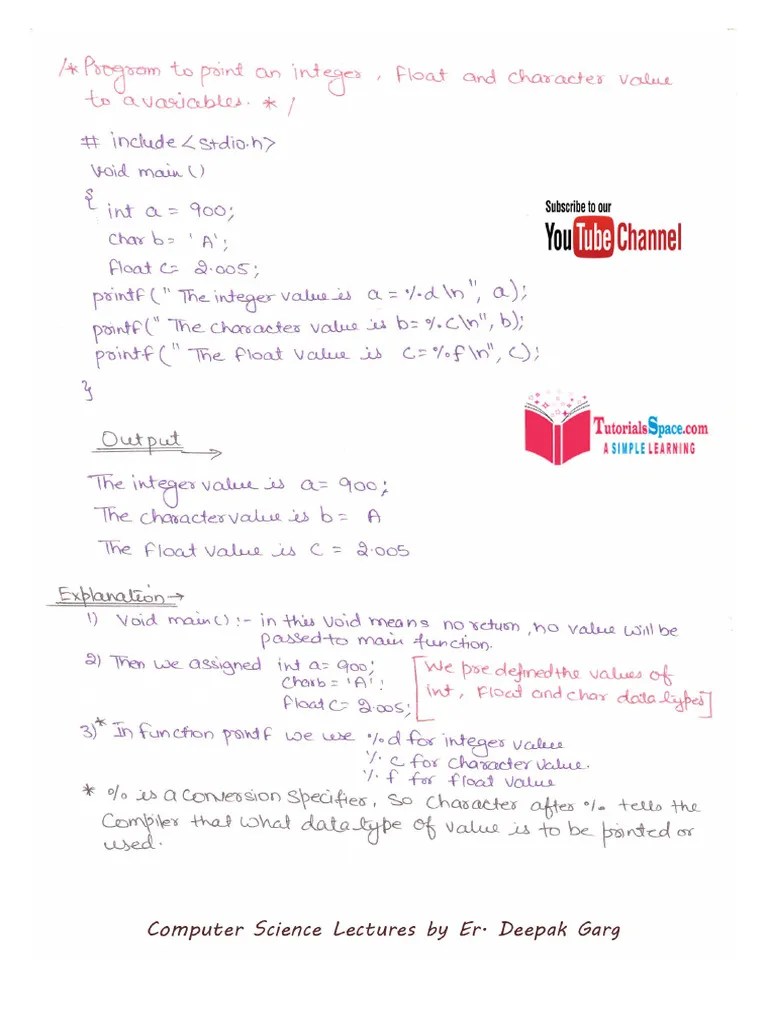 /* Program to print an integer, float and character value
to a variables. */
# include <stdio.h>
void main()
{
int a = 900;
Char b = 'A';
float c = 2.005;
printf(" The integer value is a = %d \n", a);
printf(" The character value is b = %c\n", b);
printf(" The float value is c = %f \n", c);
}
Subscribe to our
YouTube Channel
TutorialsSpace.com
A SIMPLE LEARNING
Output
The integer value is a = 900;
The character value is b = A
The float value is c = 2.005
Explanation →
1) Void main() :- in this void means no return, no value will be
passed to main function.
2) Then we assigned int a = 900;
Char b = 'A';
float c = 2.005;
[We pre defined the values of
int, float and char data types]
3)* In function printf we use %d for integer value
% c for character value.
% f for float value
* % is a conversion specifier, so character after % tells the
compiler that what data type of value is to be printed or
used.
Computer Science Lectures by Er. Deepak Garg